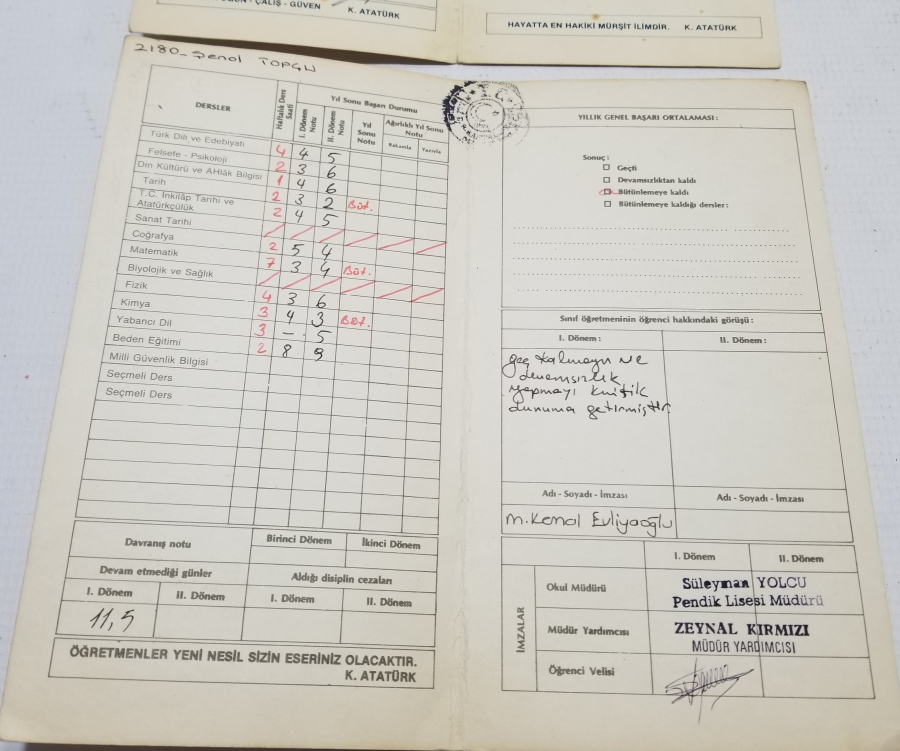 ÇALIŞ - GÜVEN K. ATATÜRK
HAYATTA EN HAKİKİ MÜRŞİT İLİMDİR. K. ATATÜRK
2180 - Şenol TOPÇU
DERSLER
Haftalık Ders Saati
Yıl Sonu Başarı Durumu
I. Dönem Notu
II. Dönem Notu
Yıl Sonu Notu
Ağırlıklı Yıl Sonu Notu
Rakamla Yazıyla
Türk Dili ve Edebiyatı 4 4 5
Felsefe - Psikoloji 2 3 6
Din Kültürü ve AHlâk Bilgisi 1 4 6
Tarih 2 3 2 Büt.
T.C. İnkilâp Tarihi ve
Atatürkçülük 2 4 5
Sanat Tarihi
Coğrafya 2 5 4
Matematik 7 3 4 Büt.
Biyolojik ve Sağlık
Fizik 4 3 6
Kimya 3 4 3 Büt.
Yabancı Dil 3 - 5
Beden Eğitimi 2 8 9
Milli Güvenlik Bilgisi
Seçmeli Ders
Seçmeli Ders
Davranış notu Birinci Dönem İkinci Dönem
Devam etmediği günler Aldığı disiplin cezaları
I. Dönem II. Dönem I. Dönem II. Dönem
11,5
ÖĞRETMENLER YENİ NESİL SİZİN ESERİNİZ OLACAKTIR.
K. ATATÜRK
YILLIK GENEL BAŞARI ORTALAMASI :
Sonuç :
Geçti
Devamsızlıktan kaldı
Bütünlemeye kaldı
Bütünlemeye kaldığı dersler :
Sınıf öğretmeninin öğrenci hakkındaki görüşü :
I. Dönem : II. Dönem :
geç kalmayı ve
devamsızlık
yapmayı kritik
duruma getirmiştir
Adı - Soyadı - İmzası Adı - Soyadı - İmzası
M. Kemal Evliyaoğlu
İMZALAR
I. Dönem II. Dönem
Okul Müdürü Süleyman YOLCU
Pendik Lisesi Müdürü
Müdür Yardımcısı ZEYNAL KIRMIZI
MÜDÜR YARDIMCISI
Öğrenci Velisi